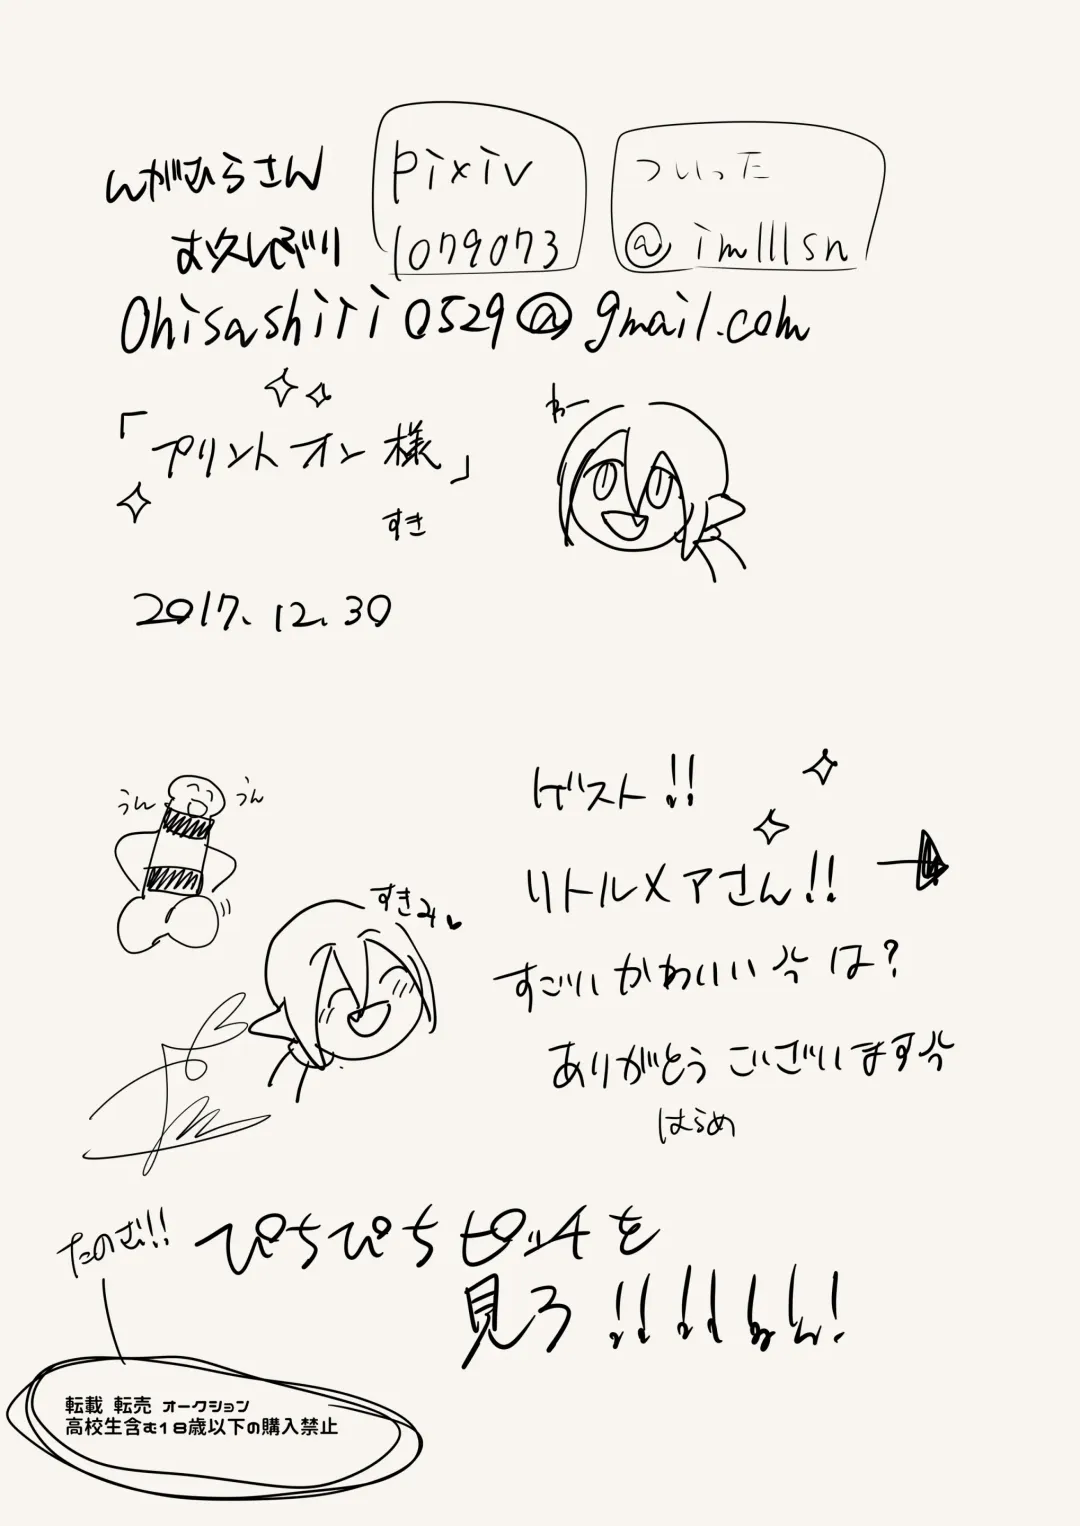 んがむらさん
お久しぶり
pixiv
1079073
ついった
@imlllsn
Ohisashiri0529@gmail.com
「プリントオン様」
すき
わー
2017.12.30
うん
うん
すきみ♥
ゲスト!!
リトルメアさん!!→
すごいかわいい は?
ありがとうございます
はらめ
たのむ!!
ぴちぴちピッチを
見ろ!!!!!!!
転載 転売 オークション
高校生含む18歳以下の購入禁止